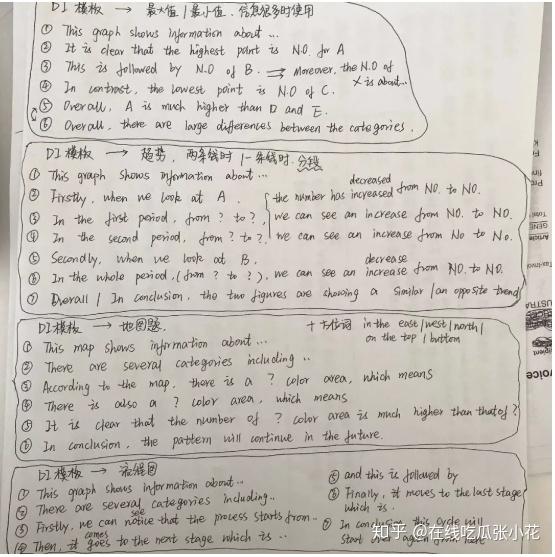 DI 模板 → 最大值 / 最小值. 信息很多时使用
① This graph shows information about ...
② It is clear that the highest point is N.O. for A
③ This is followed by N.O of B. ⇒ Moreover, the N.O of X is about...
④ In contrast, the lowest point is N.O of C.
⑤ Overall, A is much higher than D and E.
⑥ Overall, there are large differences between the categories.
DI 模板 → 趋势, 两条线时 / 一条线时. 分段
① This graph shows information about ...
decreased
② Firstly, when we look at A. the number has increased from NO. to NO.
③ In the first period, from ? to ?, we can see an increase from NO. to NO.
④ In the second period, from ? to ?, we can see an increase from No to No.
⑤ Secondly, when we look at B.
decrease
⑥ In the whole period, (from ? to ?), we can see an increase from NO. to NO.
⑦ Overall / In conclusion, the two figures are showing a similar / an opposite trend
DI 模板 → 地图题. + 方位词 in the east/west/north/
on the top / buttom
① This map shows information about ...
② There are several categories including ..
③ According to the map, there is a ? color area, which means
④ There is also a ? color area, which means
⑤ It is clear that the number of ? color area is much higher than that of ?
⑥ In conclusion, the pattern will continue in the future.
DI 模板 → 流程图
① This graph shows information about ..
② There are several categories including..
see
③ Firstly, we can notice that the process starts from ..
comes
④ Then, it goes to the next stage which is ..
⑤ and this is followed by
⑥ Finally, it moves to the last stage
which is ..
⑦ In conclusion, this cycle will
start over again from here
知乎 @在线吃瓜张小花
voice